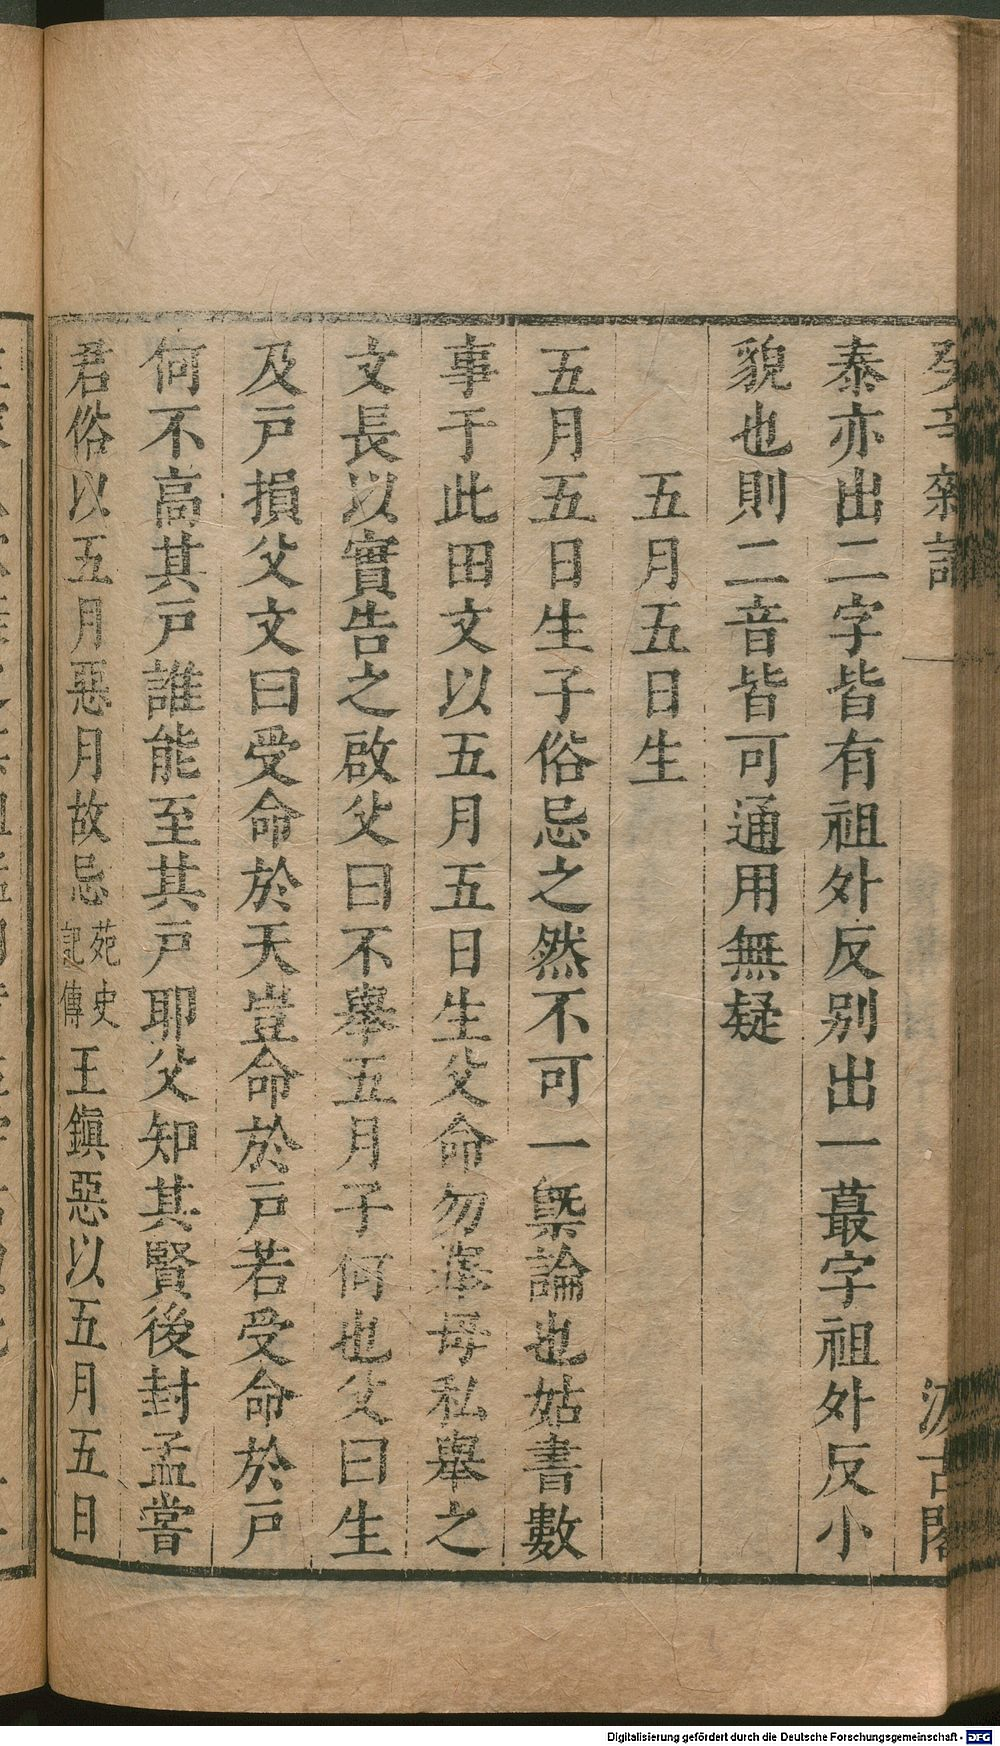 癸辛雜識 汲古閣
泰亦出二字皆有祖外反別出一蕞字祖外反小
貌也則二音皆可通用無疑
五月五日生
五月五日生子俗忌之然不可一槩論也姑書數
事于此田文以五月五日生父命勿舉母私舉之
文長以實告之啟父曰不舉五月子何也父曰生
及戸損父文曰受命於天豈命於戸若受命於戸
何不高其戸誰能至其戸耶父知其賢後封孟嘗
君俗以五月惡月故忌苑史記傳王鎭惡以五月五日
Digitalisierung gefördert durch die Deutsche Forschungsgemeinschaft - DFG